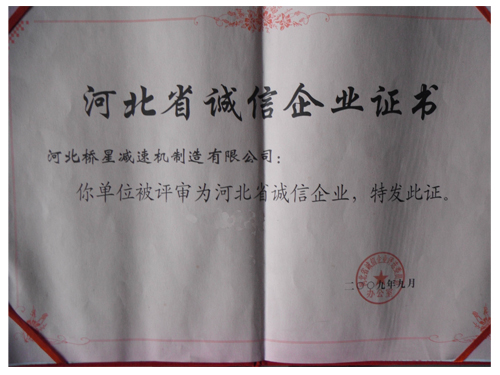 河北省诚信企业证书
河北桥星减速机制造有限公司：
你单位被评审为河北省诚信企业，特发此证。
二〇〇九年九月